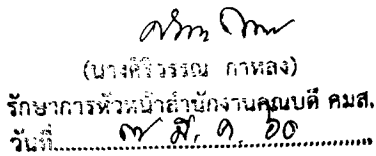 (นางศิริวรรณ กาหลง)
รักษาการหัวหน้าสำนักงานคณบดี คมส.
วันที่ ๗ มี.ค. ๖๐